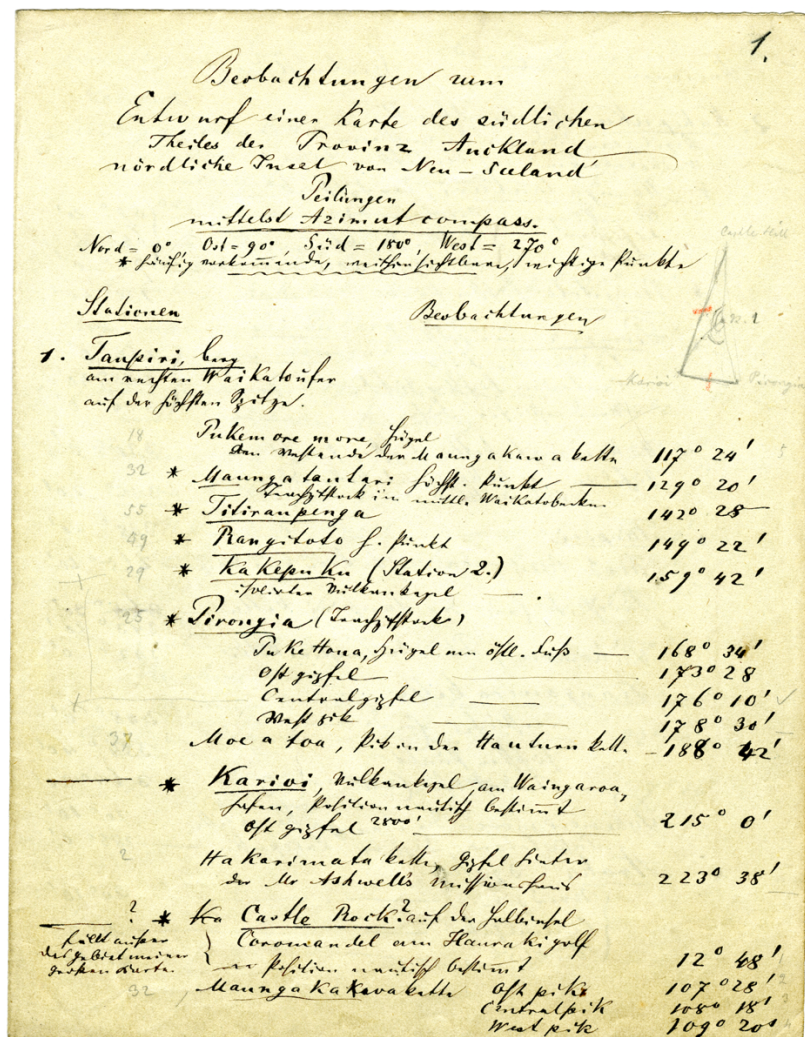 1.
Beobachtungen zum
Entwurf einer Karte des südlichen
Theiles der Provinz Auckland
nördliche Insel von Neu-Seeland
Peilungen
mittelst Azimutcompass.
Nord = 0°, Ost = 90°, Süd = 180°, West = 270°
* häufig vorkommende, weithin sichtbare, wichtige Punkte
Castle Hill
Karioi
Pirongia
Stationen Beobachtungen
1. Taupiri, berg
am rechten Waikatoufer
auf der höchsten Spitze.
18 Pukemoremore, Hügel
am Westende der Maungakawakette 117° 24'
32 * Maungatautari höchst. Punkt — 129° 20'
Trachytstock im mittl. Waikatobecken
55 * Titiraupenga 142° 28
49 * Rangitoto h. Punkt 149° 22'
29 * Kakepuku (Station 2.) 159° 42'
isolirter Vulkankegel —
25 * Pirongia (Trachytstock)
Puke Hona, Hügel am östl. Fuß — 168° 34'
Ostgipfel — 173° 28
Centralgipfel — 176° 10'
West pik — 178° 30'
37 Moeatoa, Pik in der Hauturu kette — 188° 42'
* Karioi, Vulkankegel am Waingaroa,
hafen, Position nautisch bestimmt
Ostgipfel 2800' 215° 0'
2 Hakarimata kette, Gipfel hinter
der Mr Ashwell's missionshaus 223° 38'
? * Castle Rock? auf der Halbinsel
fällt außer
das gebiet meiner
großen Karte.
Coromandel am Haurakigolf
Position nautisch bestimmt 12° 48'
32 Maungakakawakette Ost pik 107° 28'
Centralpik 108° 18'
West pik 109° 20'